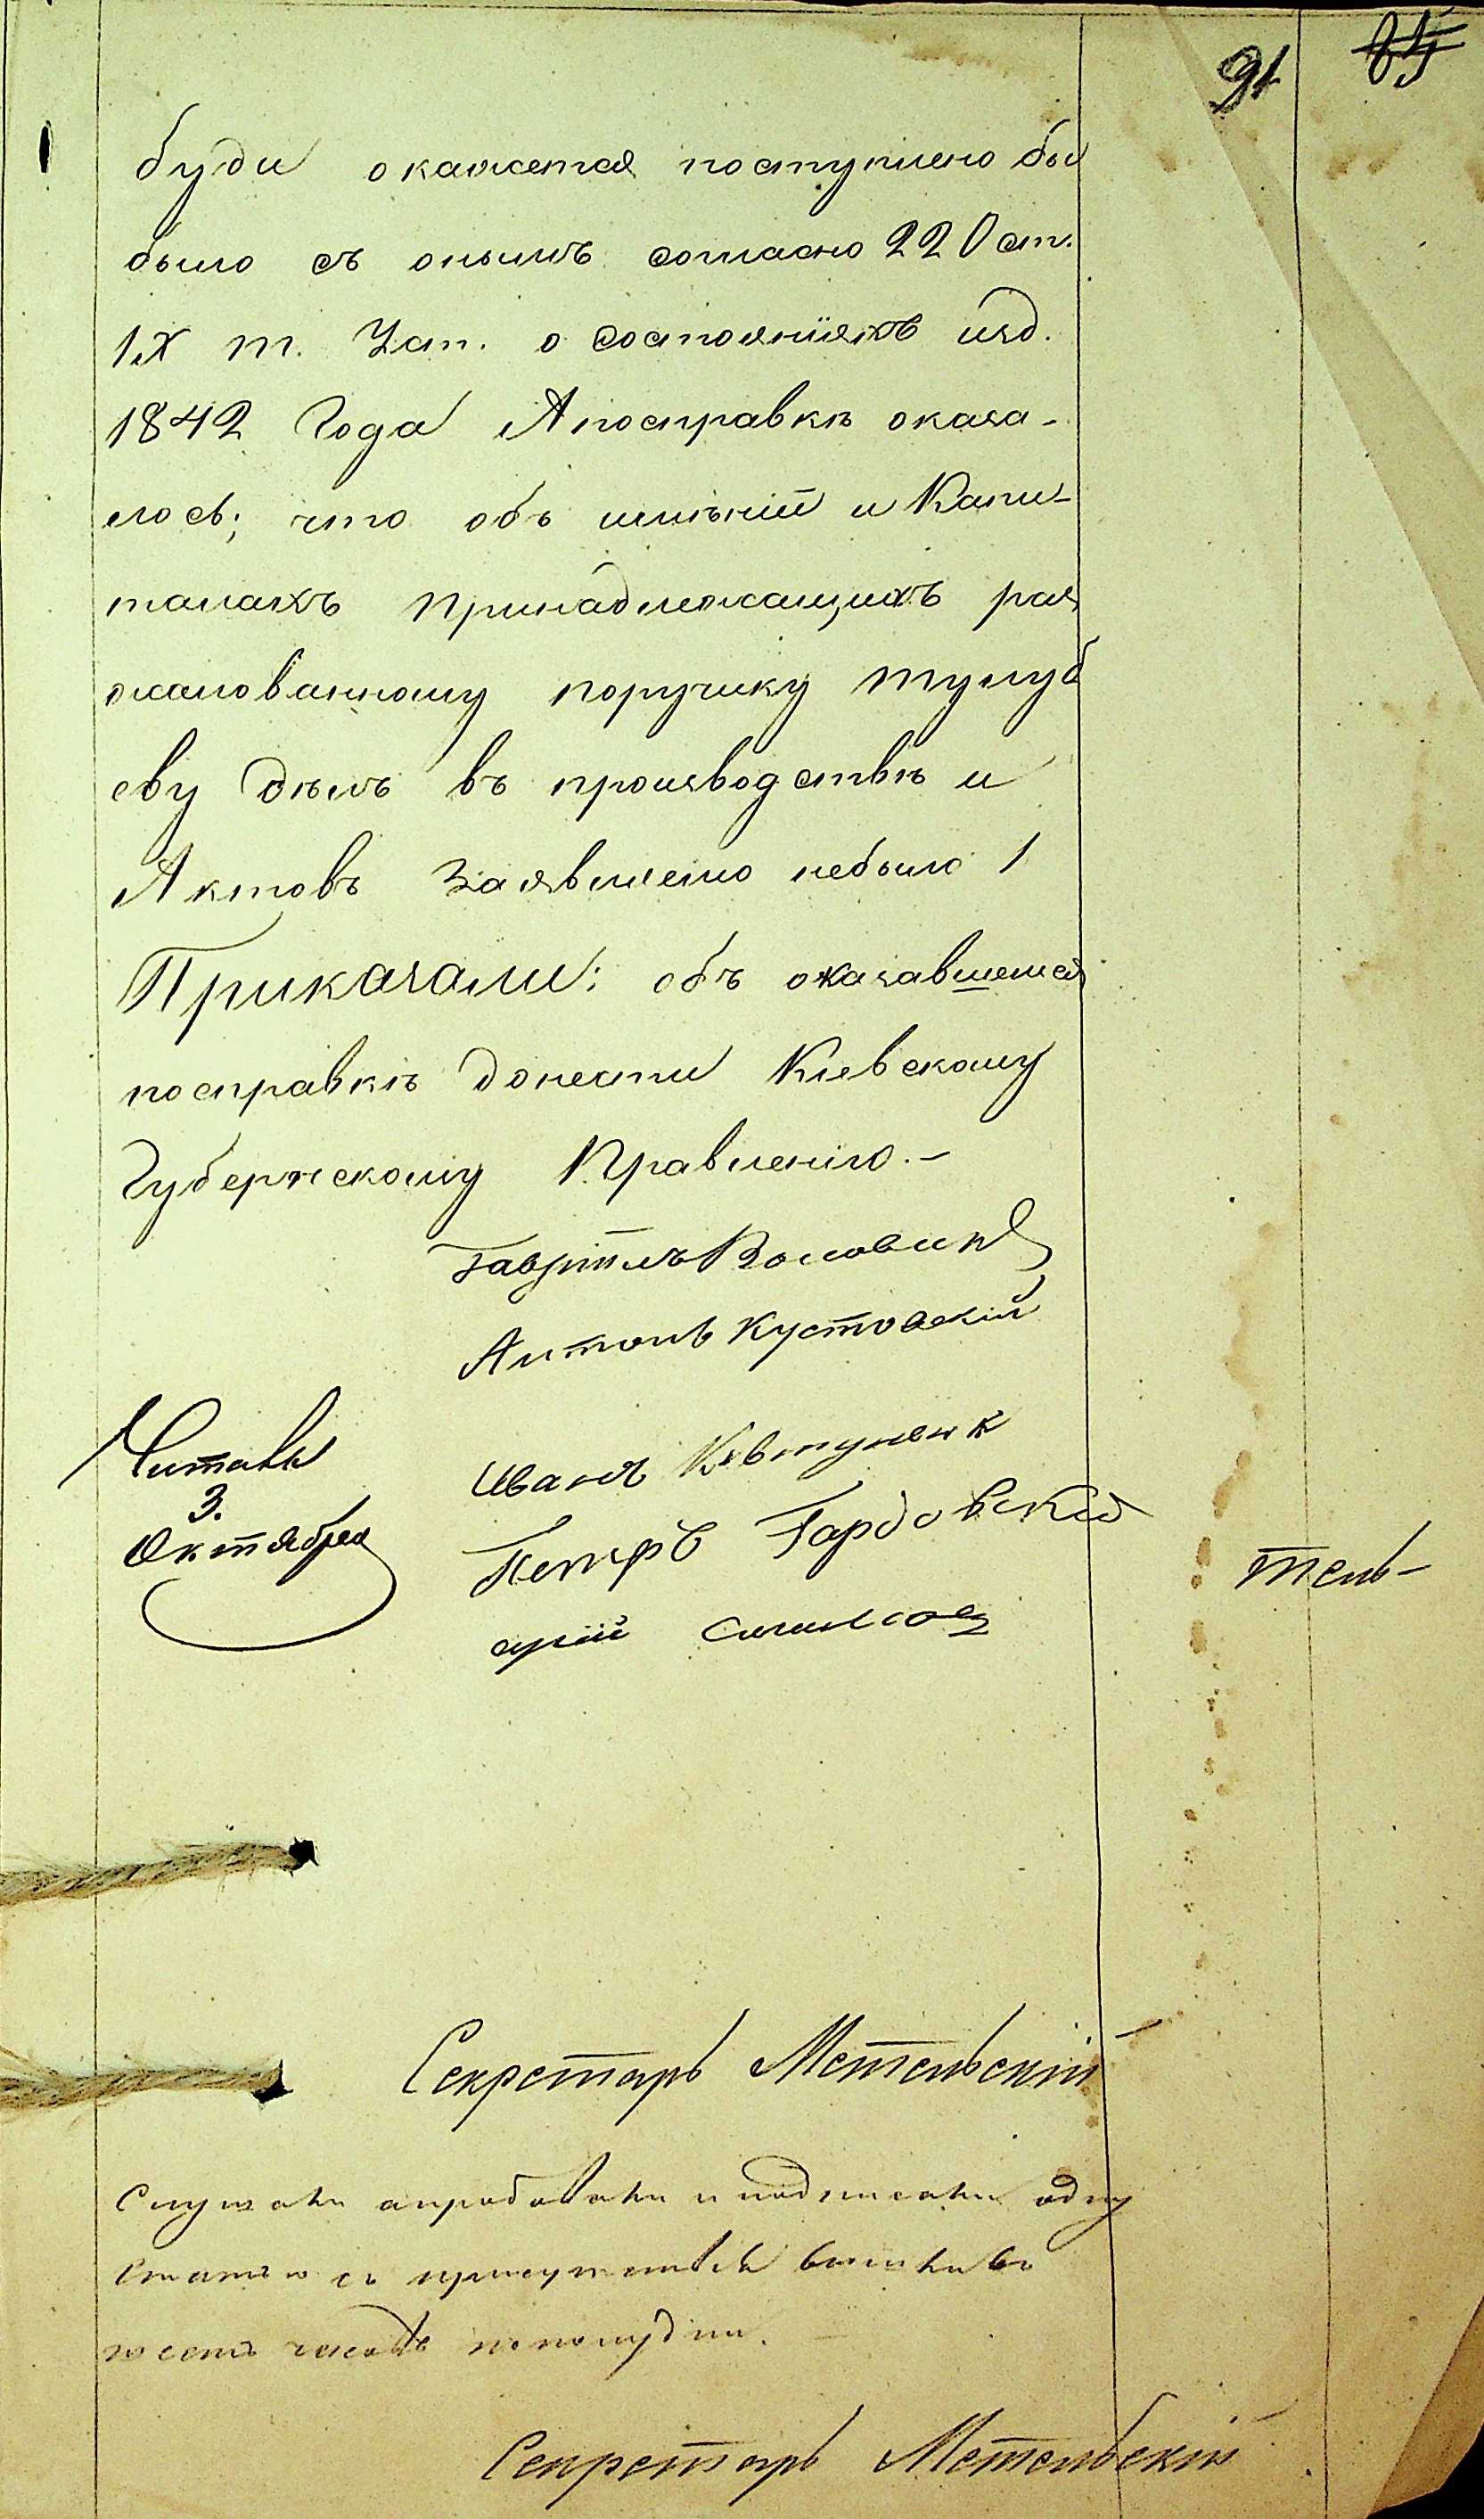 91 85
буди окажется поступлено бы
было съ онымъ согласно 220 ст.
IX т. Зап. о состоянїяхъ изд.
1842 Года А посправкѣ оказа-
лось; что объ имѣнїи и Капи-
талахъ принадлежащихъ раз
жалованному поручику Тулуб
еву дѣлъ въ производствѣ и
Актовъ Заявлено небыло
Приказали: объ оказавшемся
посправкѣ донести Кіевскому
Губернскому Правленію.-
Гавріилъ
Антонъ Кустовскій
Читалъ
3.
Октября
Иванъ
Петръ Гардовскій
тель-
Секретарь Метельскій
Слушали апробовали и подписали одну
статью съ присутствія вышли въ
часовъ пополудни.
Секретарь Метельскій